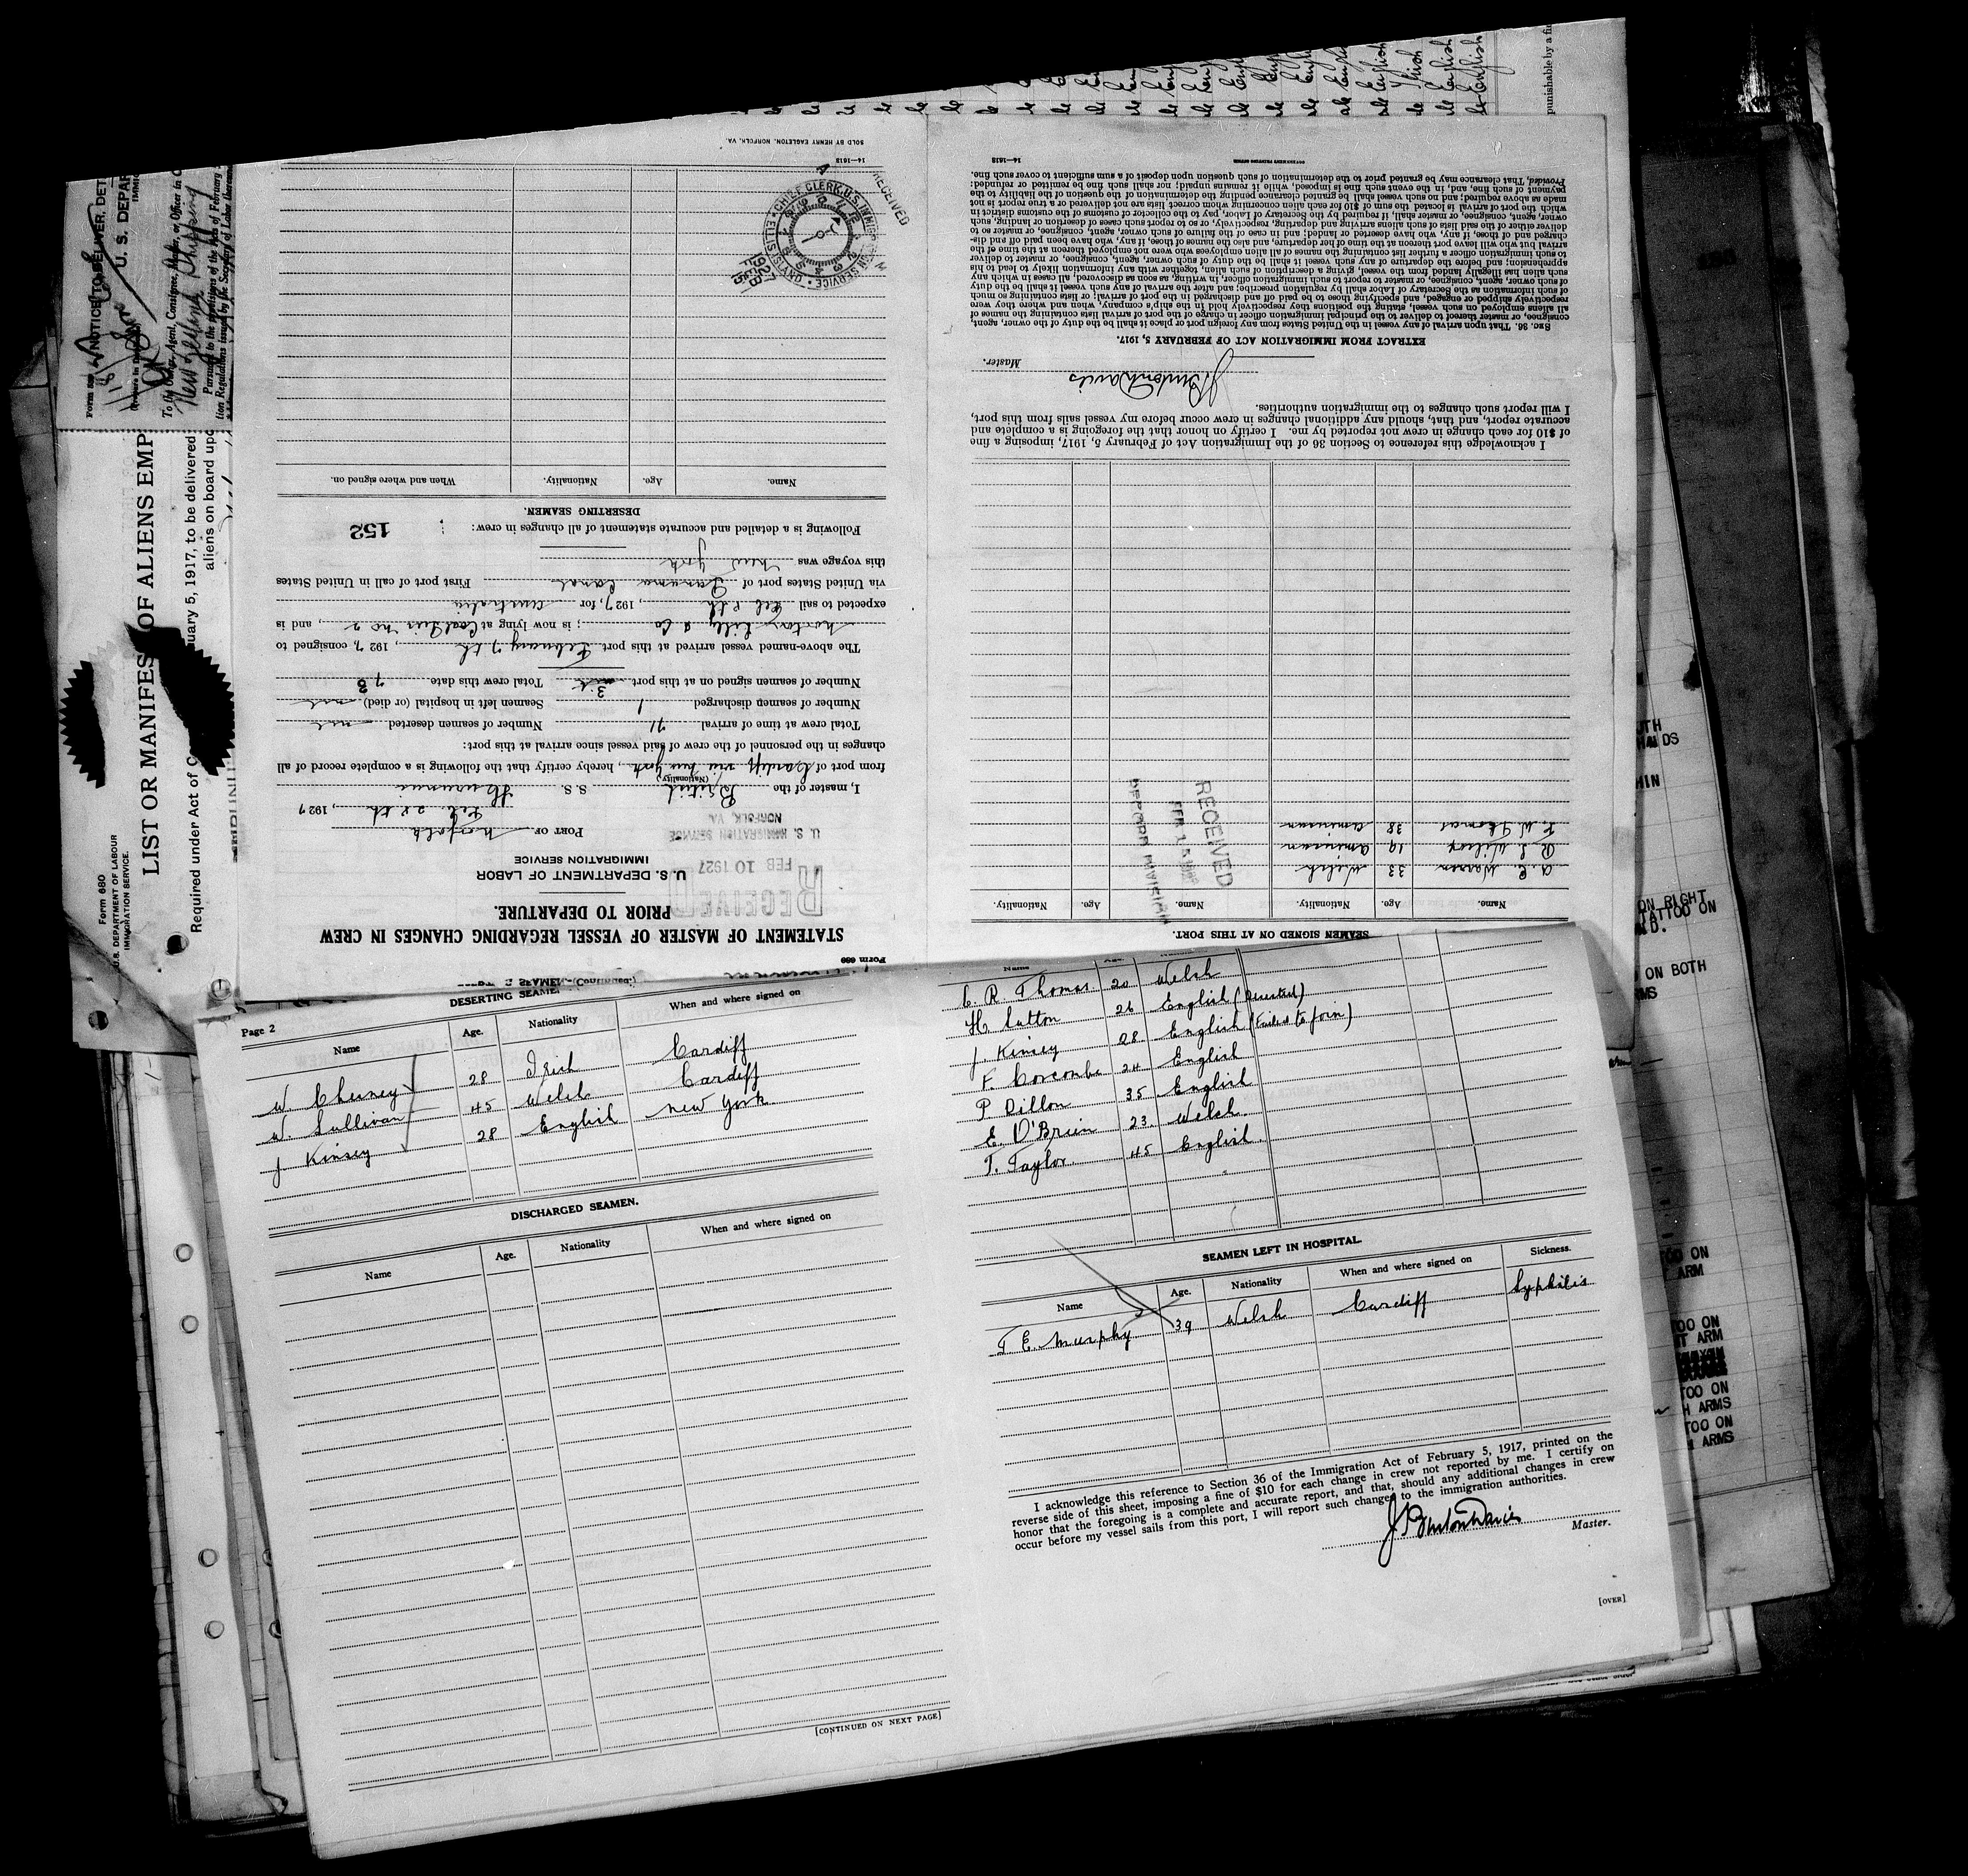 Form 689
STATEMENT OF MASTER OF VESSEL REGARDING CHANGES IN CREW
PRIOR TO DEPARTURE.
U. S. DEPARTMENT OF LABOR
IMMIGRATION SERVICE
RECEIVED
FEB 10 1927
U. S. IMMIGRATION SERVICE
NORFOLK, VA.
PORT OF Norfolk
Feb. 8th, 1927
I, master of the British S. S.
(Nationality)
from port of Cardiff via New York, hereby certify that the following is a complete record of all
changes in the personnel of the crew of said vessel since arrival at this port:
Total crew at time of arrival 71 Number of seamen deserted
Number of seamen discharged 1 Seamen left in hospital (or died)
Number of seamen signed on at this port 3 Total crew this date 73
The above-named vessel arrived at this port February 7th, 1927, consigned to
Norton Lilly & Co; is now lying at Coal Pier No 2, and is
expected to sail Feb 8th, 1927, for Australia
via United States port of Panama Canal First port of call in United States
this voyage was New York
Following is a detailed and accurate statement of all changes in crew:
152
DESERTING SEAMEN.
Name. Age. Nationality. When and where signed on.
CHIEF CLERK, U.S. IMMIGRATION SERVICE • ELLIS ISLAND
RECEIVED
1927
FEB
14—1618
SOLD BY HENRY EAGLETON, NORFOLK, VA.
SEAMEN SIGNED ON AT THIS PORT.
Name. Age. Nationality. Name. Age. Nationality.
A. C. Warren 33 Welsh
R. L. Wilroy 19 American
K. W. Thomas 38 American
RECEIVED
FEB 14
RECORD DIVISION
I acknowledge this reference to Section 36 of the Immigration Act of February 5, 1917, imposing a fine
of $10 for each change in crew not reported by me. I certify on honor that the foregoing is a complete and
accurate report, and that, should any additional changes in crew occur before my vessel sails from this port,
I will report such changes to the immigration authorities.
J. Burton Davies
Master.
EXTRACT FROM IMMIGRATION ACT OF FEBRUARY 5, 1917.
SEC. 36. That upon arrival of any vessel in the United States from any foreign port or place it shall be the duty of the owner, agent,
consignee, or master thereof to deliver to the principal immigration officer in charge of the port of arrival lists containing the names of
all aliens employed on such vessel, stating the positions they respectively hold in the ship's company, when and where they were
respectively shipped or engaged, and specifying those to be paid off and discharged in the port of arrival; or lists containing so much
of such information as the Secretary of Labor shall by regulation prescribe; and after the arrival of any such vessel it shall be the duty
of such owner, agent, consignee, or master to report to such immigration officer, in writing, as soon as discovered, all cases in which any
such alien has illegally landed from the vessel, giving a description of such alien, together with any information likely to lead to his
apprehension; and before the departure of any such vessel it shall be the duty of such owner, agent, consignee, or master to deliver
to such immigration officer a further list containing the names of all alien employees who were not employed thereon at the time of the
arrival but who will leave port thereon at the time of her departure, and also the names of those, if any, who have been paid off and dis-
charged and of those, if any, who have deserted or landed; and in case of the failure of such owner, agent, consignee, or master so to
deliver either of the said lists of such aliens arriving and departing, respectively, or so to report such cases of desertion or landing, such
owner, agent, consignee, or master shall, if required by the Secretary of Labor, pay to the collector of customs of the customs district in
which the port of arrival is located the sum of $10 for each alien concerning whom correct lists are not delivered or a true report is not
made as above required; and no such vessel shall be granted clearance pending the determination of the question of the liability to the
payment of such fine, and, in the event such fine is imposed, while it remains unpaid; nor shall such fine be remitted or refunded:
Provided, That clearance may be granted prior to the determination of such question upon deposit of a sum sufficient to cover such fine.
14—1618
GOVERNMENT PRINTING OFFICE
Form 689 NOTICE TO DELIVER, DET
U. S. DEPAR
To the Owner, Agent, Consignee, Master, or Officer in C
New Zealand Shipping
Pursuant to the provisions of the Act of February
tion Regulations issued by the Secretary of Labor thereun
Form 680
U.S. DEPARTMENT OF LABOUR
IMMIGRATION SERVICE.
LIST OR MANIFES OF ALIENS EMP
Required under Act of C uary 5, 1917, to be delivered
aliens on board upo
punishable by a fi
Page 2
DESERTING SEAMEN
Name Age. Nationality When and where signed on
W Cherney 28 Irish Cardiff
W. Sullivan 45 Welsh Cardiff
J Kinsey 28 English New York
DISCHARGED SEAMEN.
Name Age. Nationality When and where signed on
[CONTINUED ON NEXT PAGE]
Name
C. R. Thomas 20 Welsh
H Sutton 26 English (Deserted)
J. Kinsey 28 English (Failed to join)
F. Corcombe 24 English
P Dillon 35 English
E. O'Brien 23. Welsh.
T. Taylor 45 English.
SEAMEN LEFT IN HOSPITAL.
Name Age. Nationality When and where signed on Sickness.
T. E. Murphy 39 Welsh Cardiff Syphilis
I acknowledge this reference to Section 36 of the Immigration Act of February 5, 1917, printed on the
reverse side of this sheet, imposing a fine of $10 for each change in crew not reported by me. I certify on
honor that the foregoing is a complete and accurate report, and that, should any additional changes in crew
occur before my vessel sails from this port, I will report such changes to the immigration authorities.
J. Burton Davies
Master.
[OVER]
ON RIGHT
TATTOO ON
ON BOTH
TOO ON
ARM
TOO ON
T ARM
TOO ON
H ARMS
TOO ON
ARMS